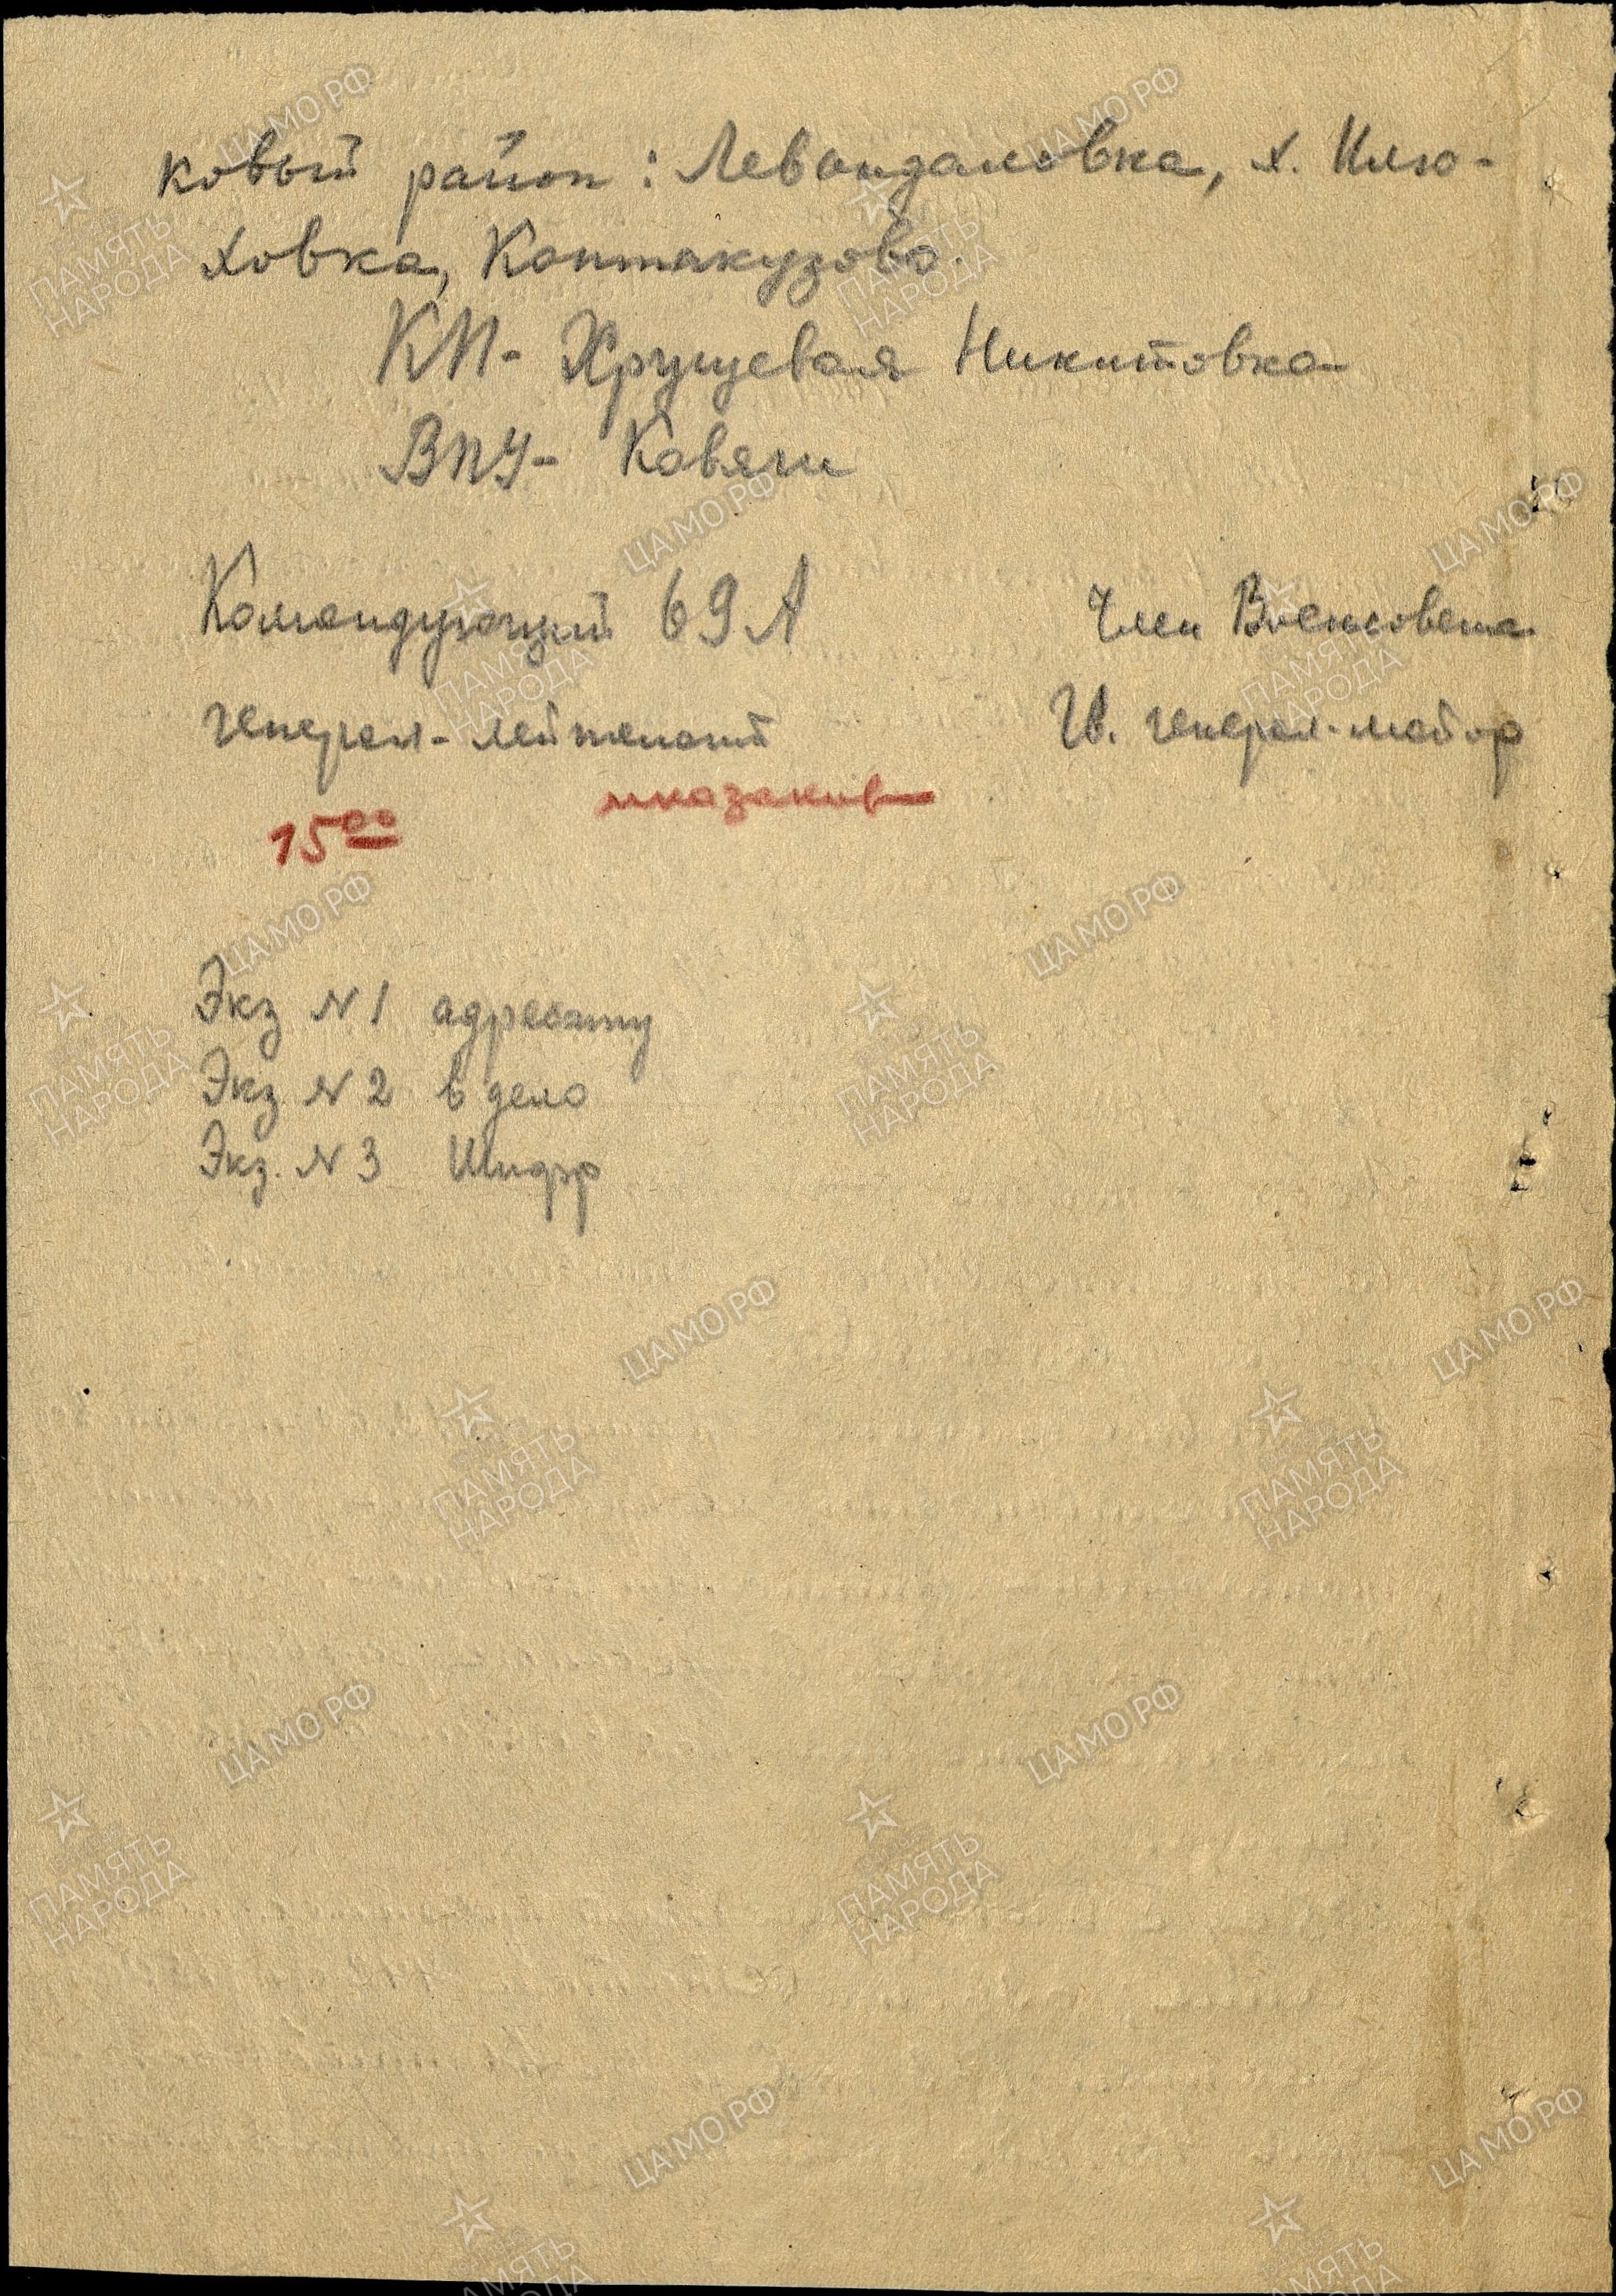 ковый район: Левандаловка, х. Илю-
ховка, Контакузово.
КП- Хрущевая Никитовка
ВПУ- Ковяги
Командующий 69 А Член Военсовета
генерал-лейтенант Гв. генерал-майор
15⁰⁰
Экз N 1 адресату
Экз N 2 в дело
Экз. N 3 Шифр
ЦАМО РФ
ПАМЯТЬ
НАРОДА